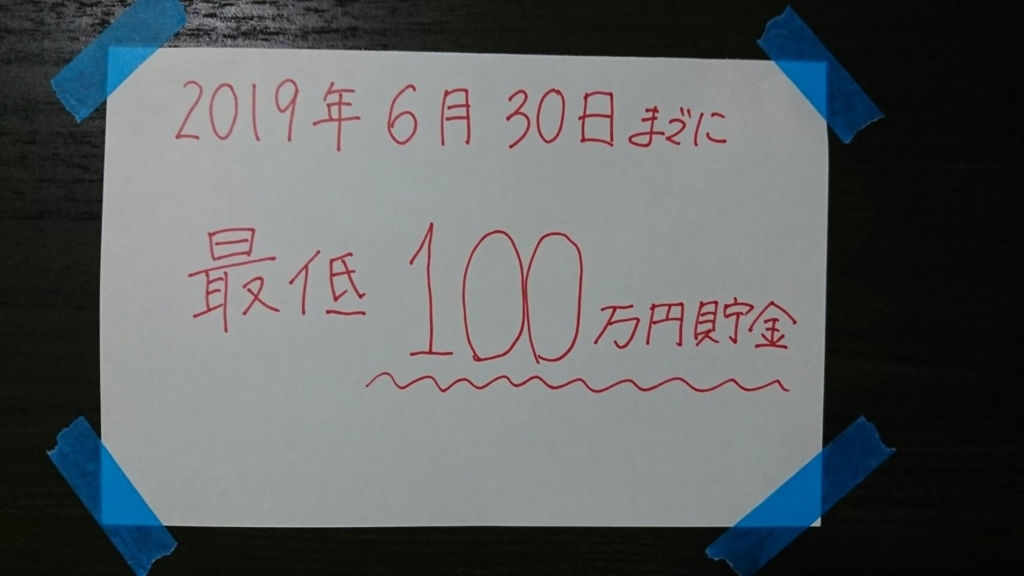 2019年6月30日までに
最低100万円貯金